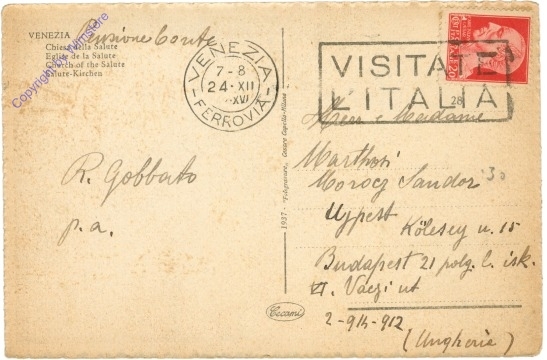 VENEZIA Pensione Conte
Chiesa della Salute
Eglise de la Salute
Church of the Salute
Salute-Kirchen
Copyright by Wimstore
VENEZIA
7-8
24·XII
XVI
FERROVIA
VISITATE
L'ITALIA
28
R. Gobbato
p. a.
1937 - "Fotogravure" Cesare Capello - Milano
Cecami
e Madame
Morocz Sandor 30
Ujpest Kölcsey u. 15
Budapest 21 polg. l. isk.
VI. Váczi ut
2-914-912
(Ungheria)